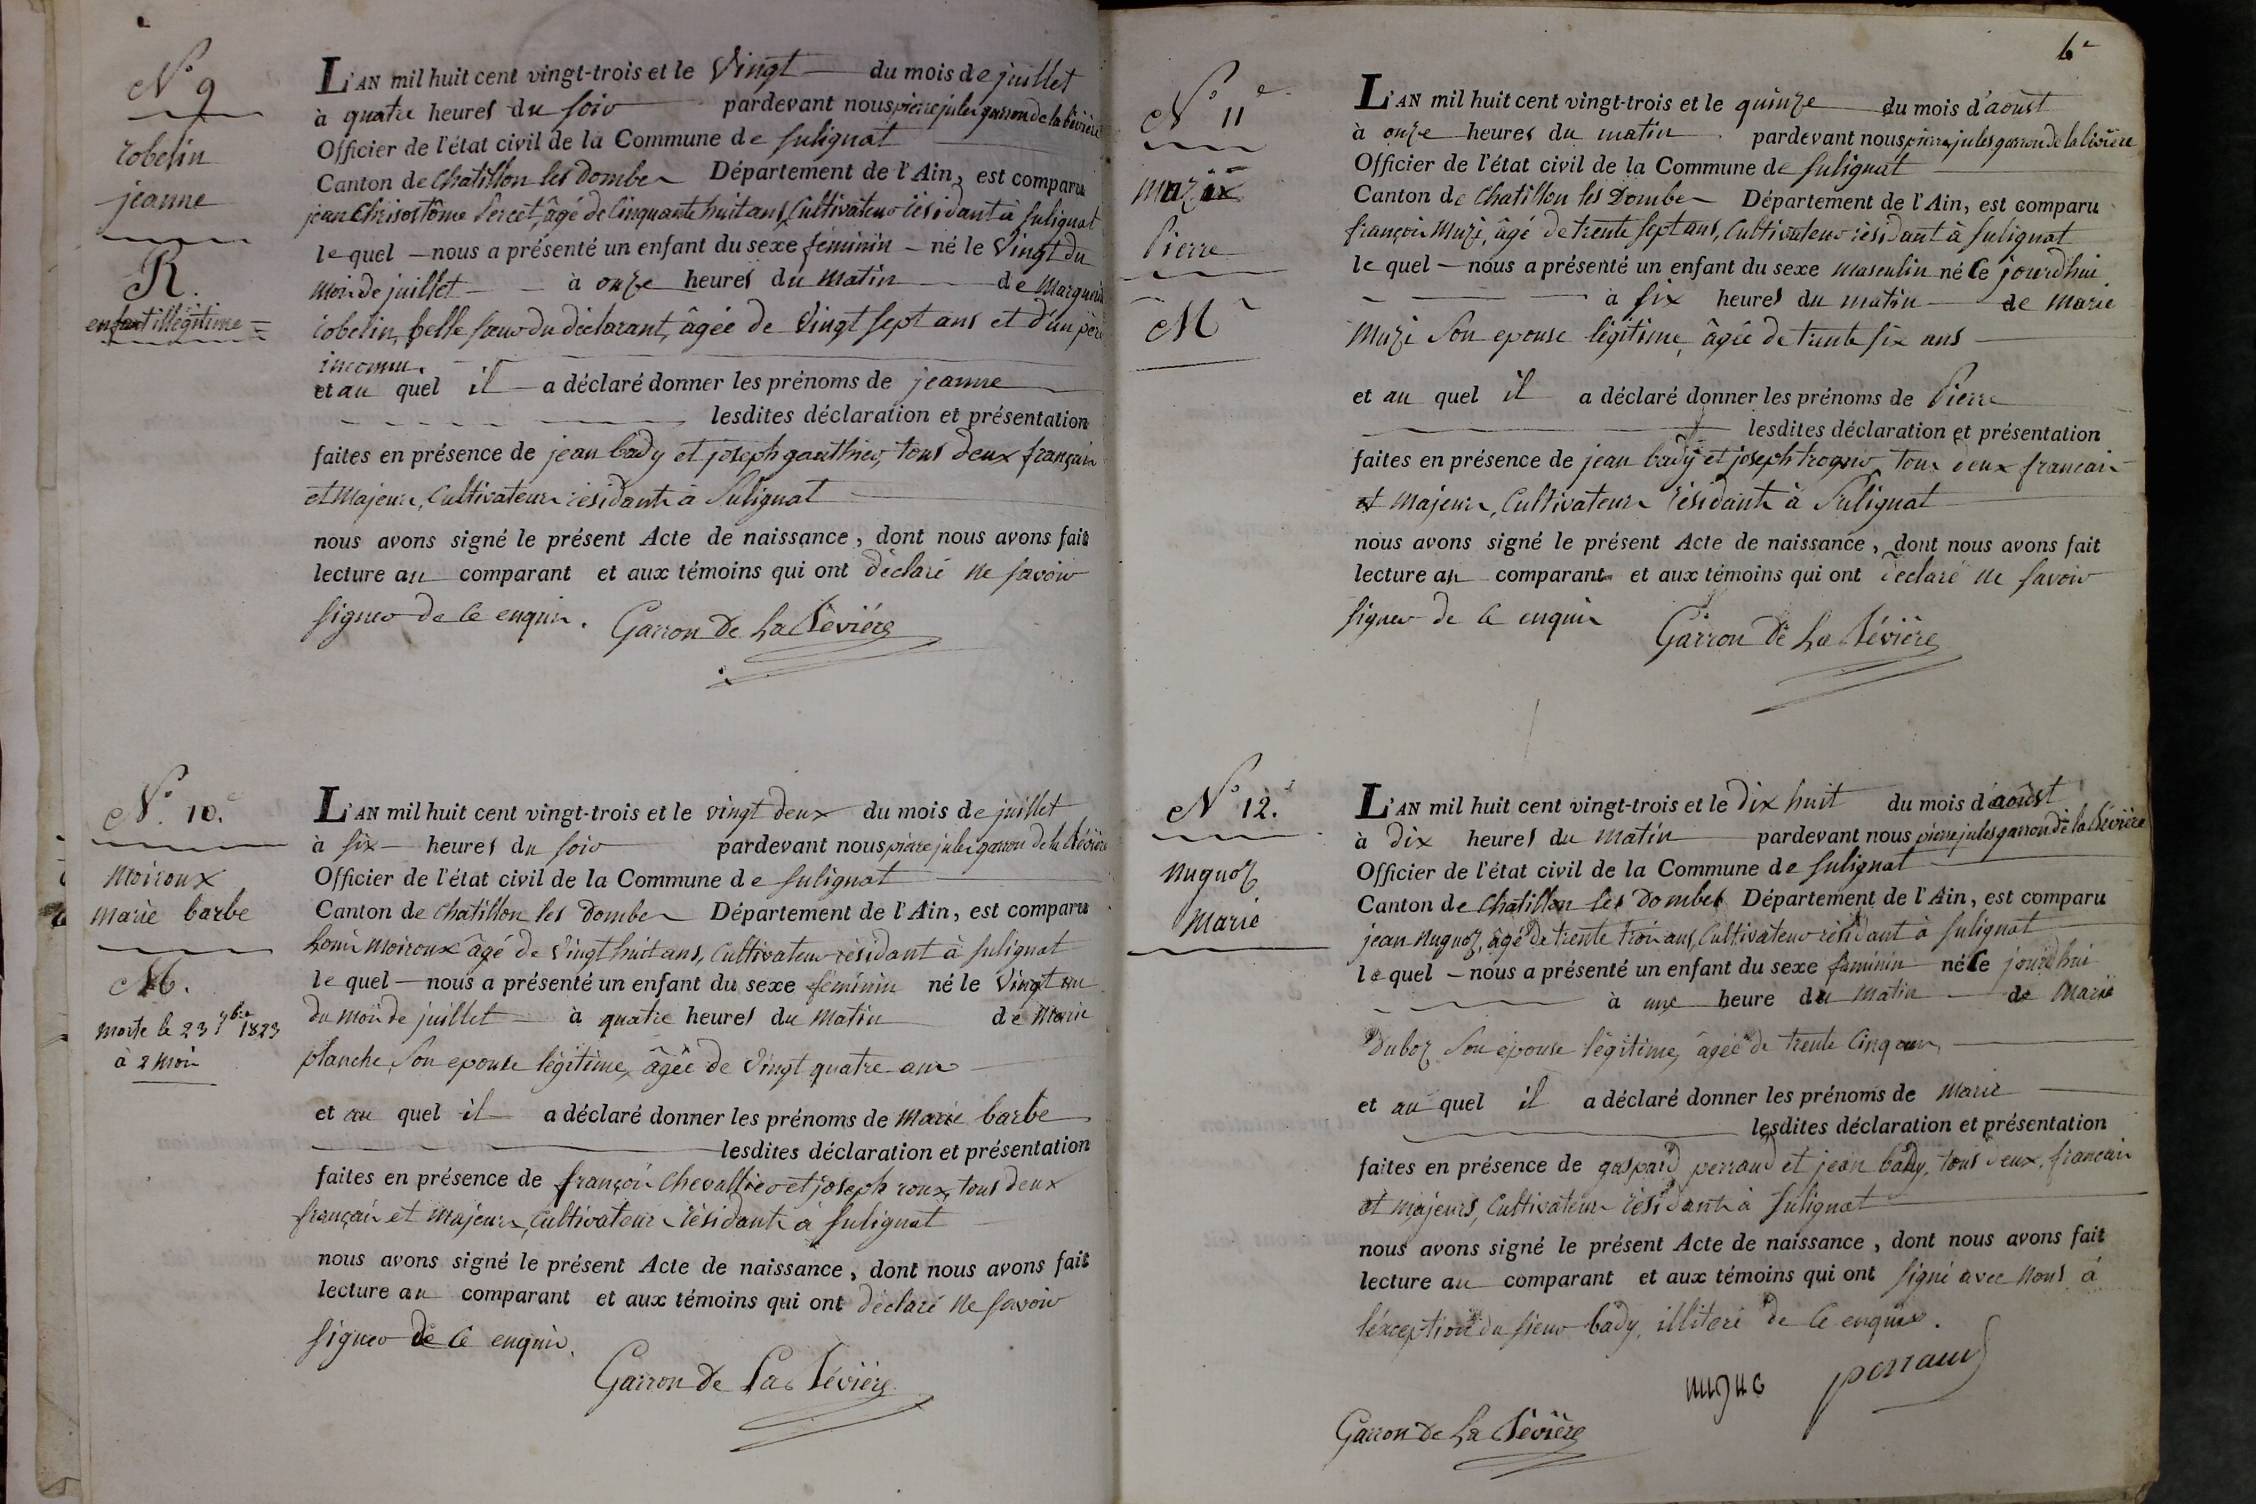 N.° 9
robelin
jeanne
R.
enfant illégitime =
L'AN mil huit cent vingt-trois et le Vingt du mois de juillet
à quatre heures du soir pardevant nous pierre jules garron de la bévière
Officier de l'état civil de la Commune de Sulignat
Canton de Chatillon les Dombes Département de l'Ain, est comparu
jean Chrisostôme Percet, âgé de Cinquante huit ans, Cultivateur résidant à Sulignat
lequel nous a présenté un enfant du sexe féminin né le Vingt du
mois de juillet à onze heures du matin de Marguerite
robelin, belle sœur du déclarant, âgée de Vingt sept ans et d'un père
inconnu.
et au quel il a déclaré donner les prénoms de jeanne
lesdites déclaration et présentation
faites en présence de jean bady et joseph gauthier, tous deux français
et Majeurs, Cultivateurs résidants à Sulignat
nous avons signé le présent Acte de naissance, dont nous avons fait
lecture au comparant et aux témoins qui ont déclaré ne savoir
signer de ce enquis. Garron De La Bévière
N.° 10.e
Moiroux
marie barbe
M.
morte le 23 7bre 1823
à 2 mois
L'AN mil huit cent vingt-trois et le vingt deux du mois de juillet
à six heures du soir pardevant nous pierre jules garron de la Bévière
Officier de l'état civil de la Commune de Sulignat
Canton de Chatillon les Dombes Département de l'Ain, est comparu
Louis Moiroux âgé de Vingt huit ans, Cultivateur résidant à Sulignat
lequel nous a présenté un enfant du sexe féminin né le Vingt un
du mois de juillet à quatre heures du matin de Marie
planche, Son epouse légitime, âgée de Vingt quatre ans
et au quel il a déclaré donner les prénoms de Marie barbe
lesdites déclaration et présentation
faites en présence de françois Chevallier et joseph roux, tous deux
français et majeurs, Cultivateurs résidants à Sulignat
nous avons signé le présent Acte de naissance, dont nous avons fait
lecture au comparant et aux témoins qui ont déclaré ne savoir
signer de ce enquis.
Garron De La Bévière
6e
N.° 11e
Muzi
Pierre
M
L'AN mil huit cent vingt-trois et le quinze du mois d'août
à onze heures du matin pardevant nous pierre jules garron de la bévière
Officier de l'état civil de la Commune de Sulignat
Canton de Chatillon les Dombes Département de l'Ain, est comparu
françois Muzi, âgé de trente sept ans, Cultivateur résidant à Sulignat
lequel nous a présenté un enfant du sexe Masculin né ce jourd'hui
à six heures du matin de Marie
Muzi Son epouse légitime, âgée de trente six ans
et au quel il a déclaré donner les prénoms de Pierre
lesdites déclaration et présentation
faites en présence de jean bady et joseph trognio tous deux français
et majeurs, Cultivateurs résidants à Sulignat
nous avons signé le présent Acte de naissance, dont nous avons fait
lecture au comparant et aux témoins qui ont déclaré ne savoir
signer de ce enquis
Garron De La Bévière
N.° 12.e
Nuguoz
Marie
L'AN mil huit cent vingt-trois et le Dix huit du mois d'août
à dix heures du matin pardevant nous pierre jules garron de la Bévière
Officier de l'état civil de la Commune de Sulignat
Canton de Chatillon les Dombes Département de l'Ain, est comparu
jean Nuguoz, âgé de trente trois ans, Cultivateur résidant à Sulignat
lequel nous a présenté un enfant du sexe féminin né ce jourd'hui
à une heure du matin de Marie
Duboz Son épouse légitime, âgée de trente Cinq ans,
et au quel il a déclaré donner les prénoms de Marie
lesdites déclaration et présentation
faites en présence de gaspard perraud et jean bady, tous deux français
et majeurs, Cultivateurs résidants à Sulignat
nous avons signé le présent Acte de naissance, dont nous avons fait
lecture au comparant et aux témoins qui ont signé avec nous à
l'éxception du sieur bady, illiteré de ce enquis.
nugue perraud
Garron De La Bévière